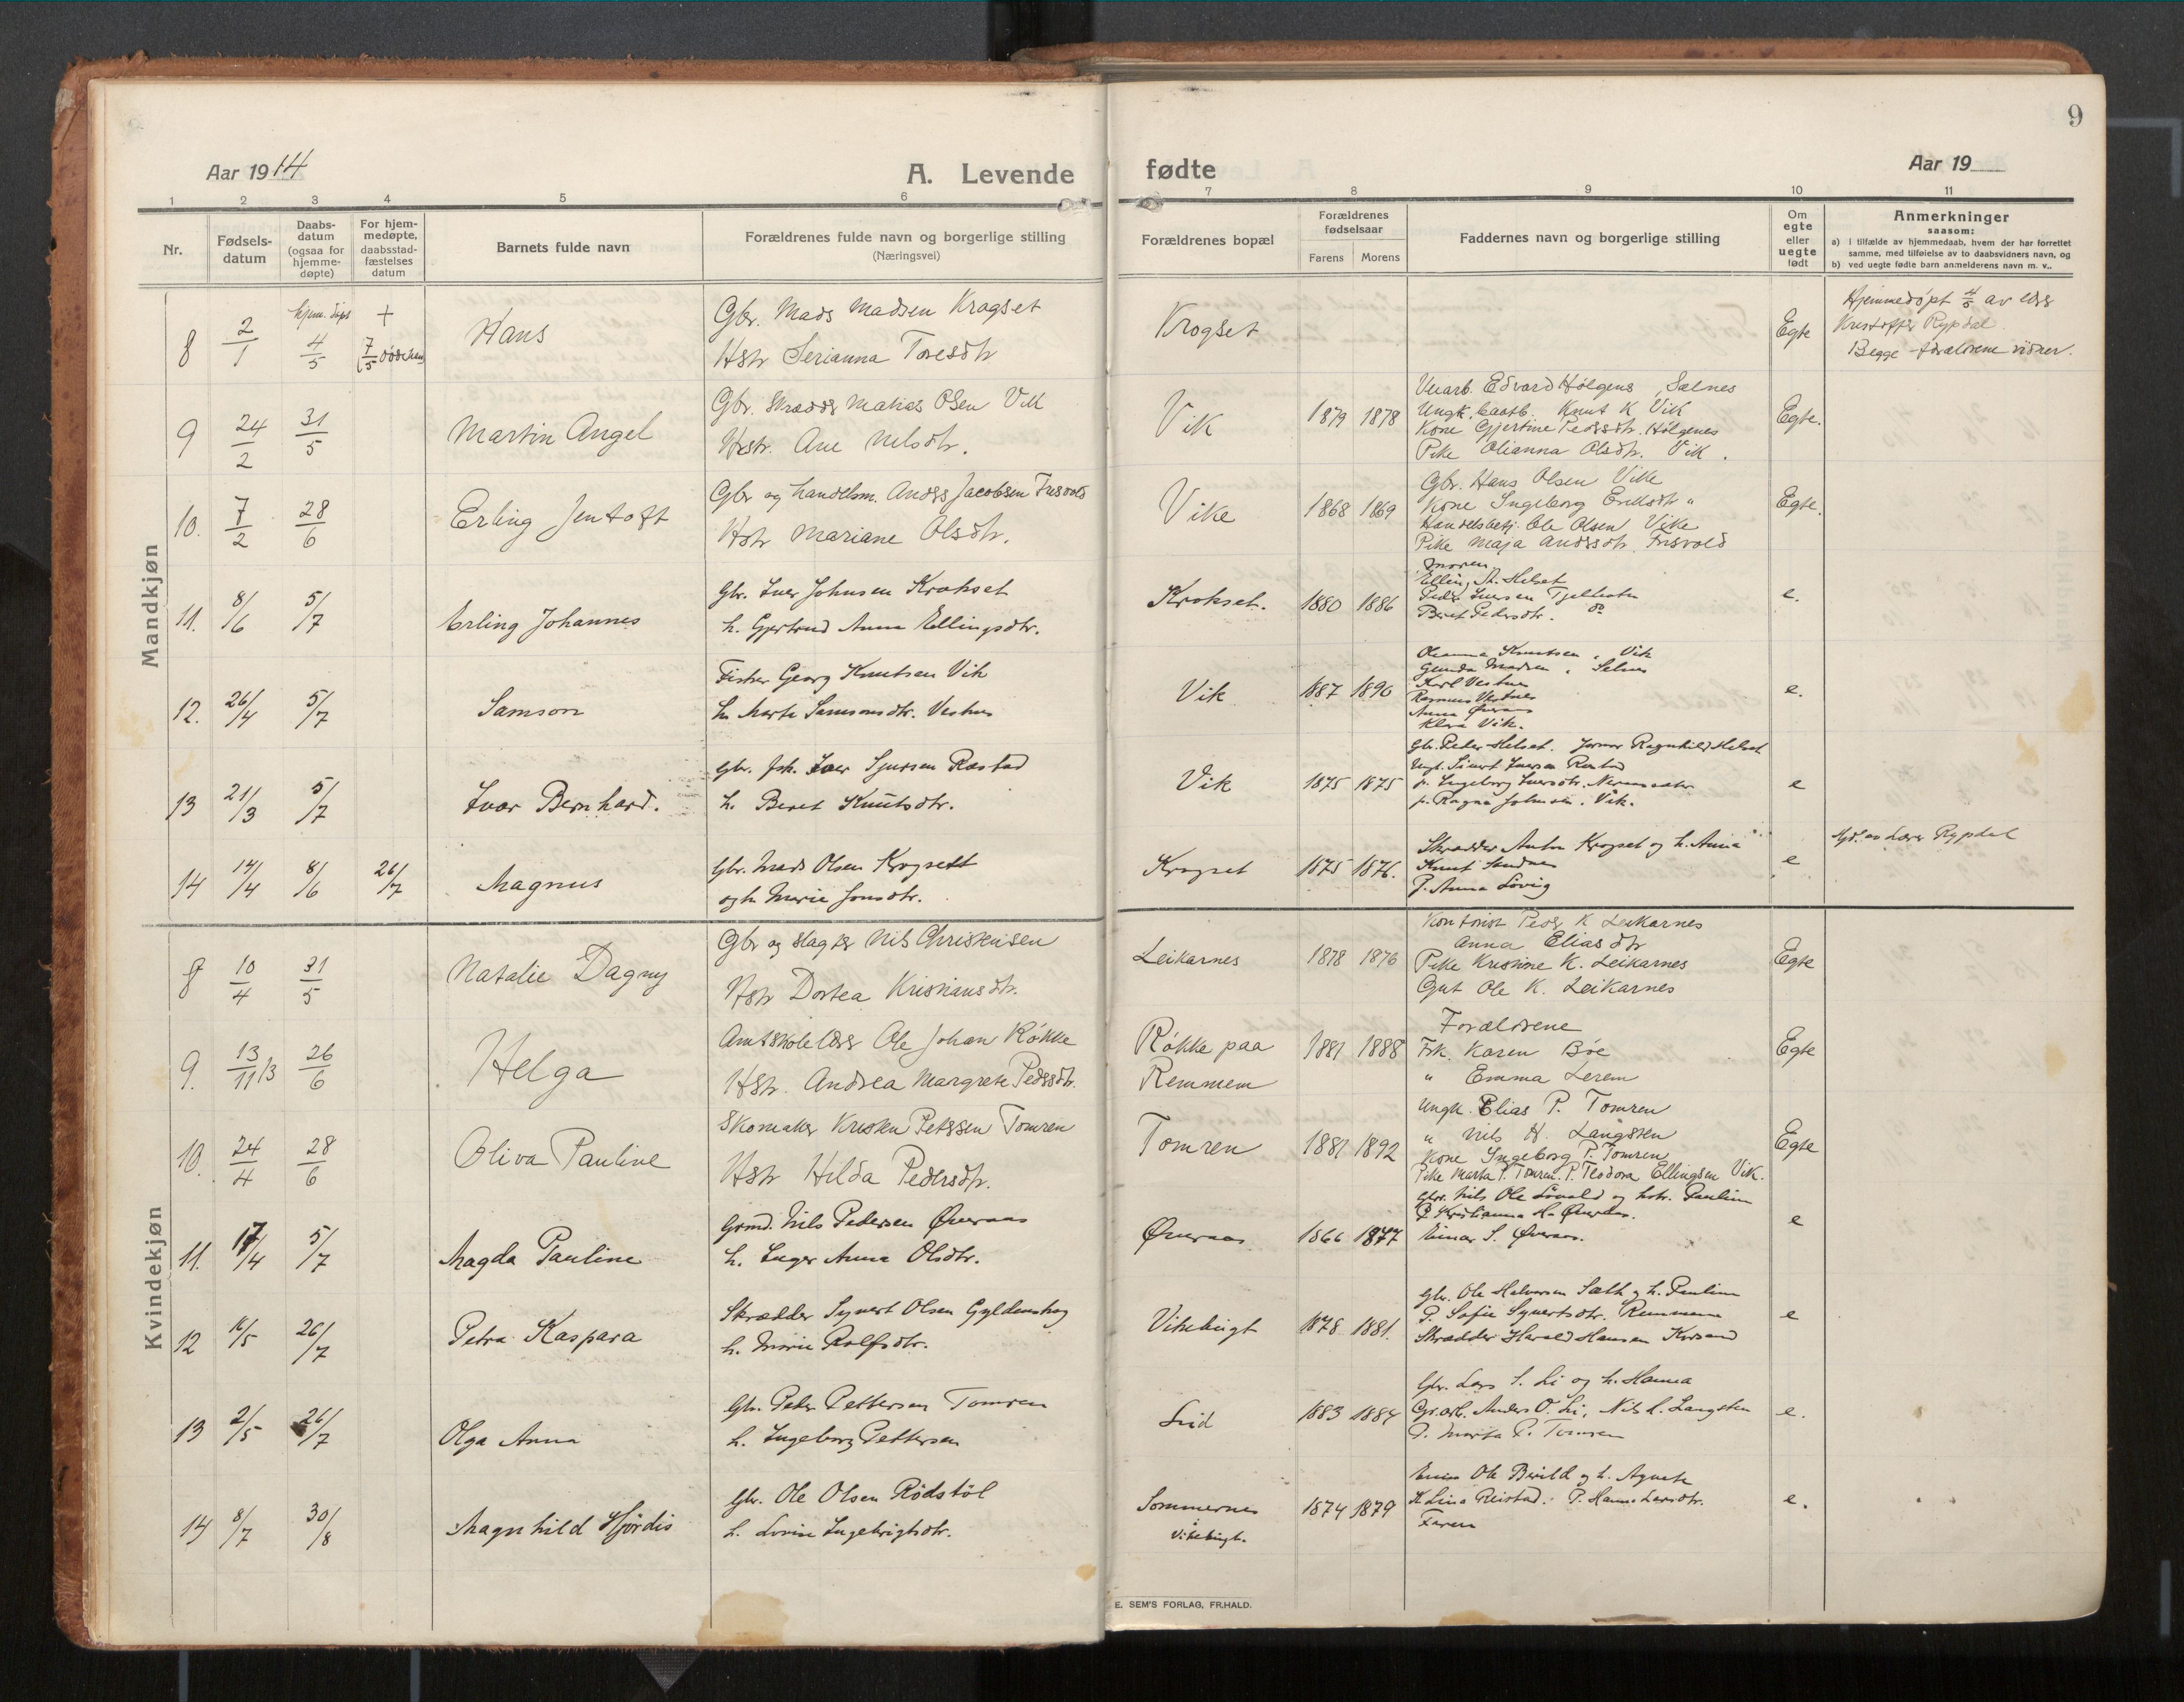 9
Aar 1914
A. Levende fødte
Aar 19
1 2 3 4 5 6 7 8 9 10 11
Nr.
Fødsels-
datum
Daabs-
datum
(ogsaa for
hjemme-
døpte)
For hjem-
medøpte,
daabsstad-
fæstelses
datum
Barnets fulde navn
Forældrenes fulde navn og borgerlige stilling
(Næringsvei)
Forældrenes bopæl
Forældrenes
fødselsaar
Farens Morens
Faddernes navn og borgerlige stilling
Om
egte
eller
uegte
født
Anmerkninger
saasom:
a) i tilfælde av hjemmedaab, hvem der har forrettet
samme, med tilføielse av to daabsvidners navn, og
b) ved uegte fødte barn anmelderens navn m. v..
Mandkjøn
8 2/1 hjem. døpt 4/5 + 7/5 Hans
Gbr. Mads Madsen Krogset
Hstr Serianna Toresdtr
Krogset Egte
Hjemmedøpt 4/5 av
Kristoffer Rypdal.
Begge forældrene vidner.
9 24/2 31/5 Martin Angel
Gbr. Matias Olsen Vik
Hstr. Ane Nelsdtr.
Vik 1879 1878
Edvard Hølgens, Sælnes
Ungk. Knut K Vik
Kone Gjertine Pedersdtr. Hølgenes
Pike Olianna Olsdtr. Vik.
Egte.
10. 7/2 28/6 Erling Jentoft
Gbr og handelsm. Anders Jacobsen Frisvold
Hstr Mariane Olsdtr.
Vike 1868 1869
Gbr. Hans Olsen Vike
Kone Ingeborg Eriksdtr "
Handelsbetj. Ole Olsen Vike
Pike Maja Andersdtr. Frisvold
Egte.
11. 8/6 5/7 Erling Johannes
Gbr. Iver Johnsen Krokset
h. Gjertrud Anna Ellingsdtr.
Krokset. 1880 1886
Moren,
Elling A. Helset
Peder Iversen
Beret Pedersdtr. do
e.
12. 26/4 5/7 Samson
Fisker Georg Knutsen Vik
h. Marte Samsonsdtr.
Vik 1887 1890
Oleanna Knutsen, Vik
Gunda Madsen, Selnes
Karl
Rasmus
Anna Øveraas
Klara Vik.
e.
13 21/3 5/7 Ivar Bernhard.
Gbr. fsk. Iver Sjursen Rastad
h. Beret Knutsdtr.
Vik 1875 1875
Gbr. Peder Helset. Ragnhild Helset
Ungk. Sivert Iversen Rastad
p. Ingeborg Iversdtr.
p. Ragna Johnsen. Vik.
e
14 14/4 8/6 26/7 Magnus
Gbr. Mads Olsen Krogsett
og h. Marie Jonsdtr.
Krogset 1875 1876.
Skrædder Anton Krogset og h. Anna
Knut Sandnes
P. Anna Løvig
e
Hjd. av Lærer Rypdal
Kvindekjøn
8 10/4 31/5 Natalie Dagny
Gbr og slagter Nils Christensen
Hstr Dortea Kristiansdtr.
Leikarnes 1878 1876
Kontorist Peder K Leikarnes
Anna Eliasdtr
Pike Kristine K. Leikarnes
Gut Ole K. Leikarnes
Egte
9. 13/11 13 26/6 Helga
Amtskolelærer Ole Johan Røkke
Hstr. Andrea Margrete Pedersdtr.
Røkke paa
Remmem
1881 1888
Forældrene
Frk. Karen Bøe
" Emma Lerem
Egte
10. 24/4 28/6 Oliva Pauline
Skomaker Kristen Petersen Tomren
Hstr Hilda Pedersdtr.
Tomren 1881 1892
Ungk. Elias P. Tomren
" Nils H. Langsten
Kone Ingeborg P. Tomren
Pike Marta P. Tomren. P. Teodora Ellingsen Vik.
Egte
11. 17/4 5/7 Magda Pauline
Grmd. Nils Pedersen Øveraas
h. Inger Anna Olsdtr.
Øveraas 1866 1877
Gbr. Nils Ole Løvold og hstr. Pauline
P. Kristianna H. Øveraas.
Einar S. Øveraas.
e
12 16/5 26/7 Petra Kaspara
Skrædder Syvert Olsen Gyldenskog
h. Marie Rolfsdtr.
Vikebugt 1878 1881.
Gbr. Ole Halvorsen Sæth og h. Pauline
P. Sofie Syvertsdtr. Remmem
Skrædder Harald Hansen
e
13 2/5 26/7 Olga Anna
Gbr. Peder Pettersen Tomren
h. Ingeborg Pettersen
Lid 1883 1884
Gbr. Lars S. Li og h. Hanna
Gr.arb. Anders O. Li, Nils H. Langsten
P. Marta P. Tomren
e.
14 8/7 30/8 Magnhild Hjørdis
Gbr. Ole Olsen Rødstøl
h. Lovise Ingebrigtsdtr.
Sommernes
i
Vikebugt.
1874 1879
Ole Bivild og h. Agnete
K. Lina Reistad. P. Hanna Larsdtr.
Faren
e.
E. SEM'S FORLAG, FR.HALD.